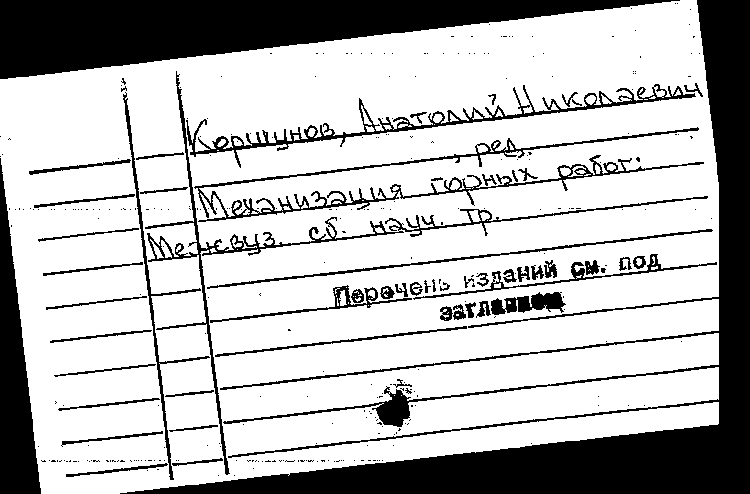 Коршунов, Анатолий Николаевич
, ред.
Механизация горных работ:
Межвуз. сб. науч. тр.
Перечень изданий см. под
заглавием